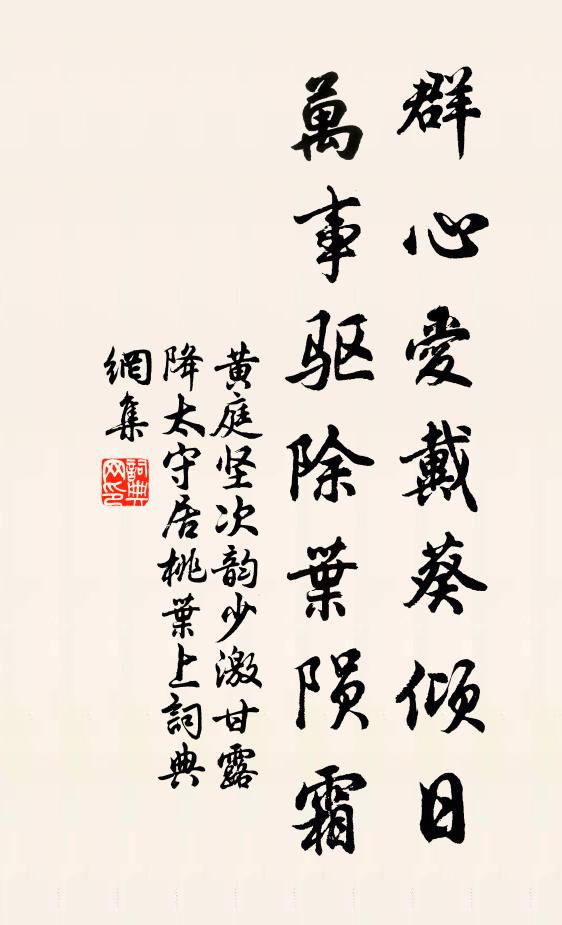 群心愛戴葵倾日
萬事驱除葉陨霜
黄庭坚次韵少激甘露
降太守居桃葉上詞典
網集
詞典
网印